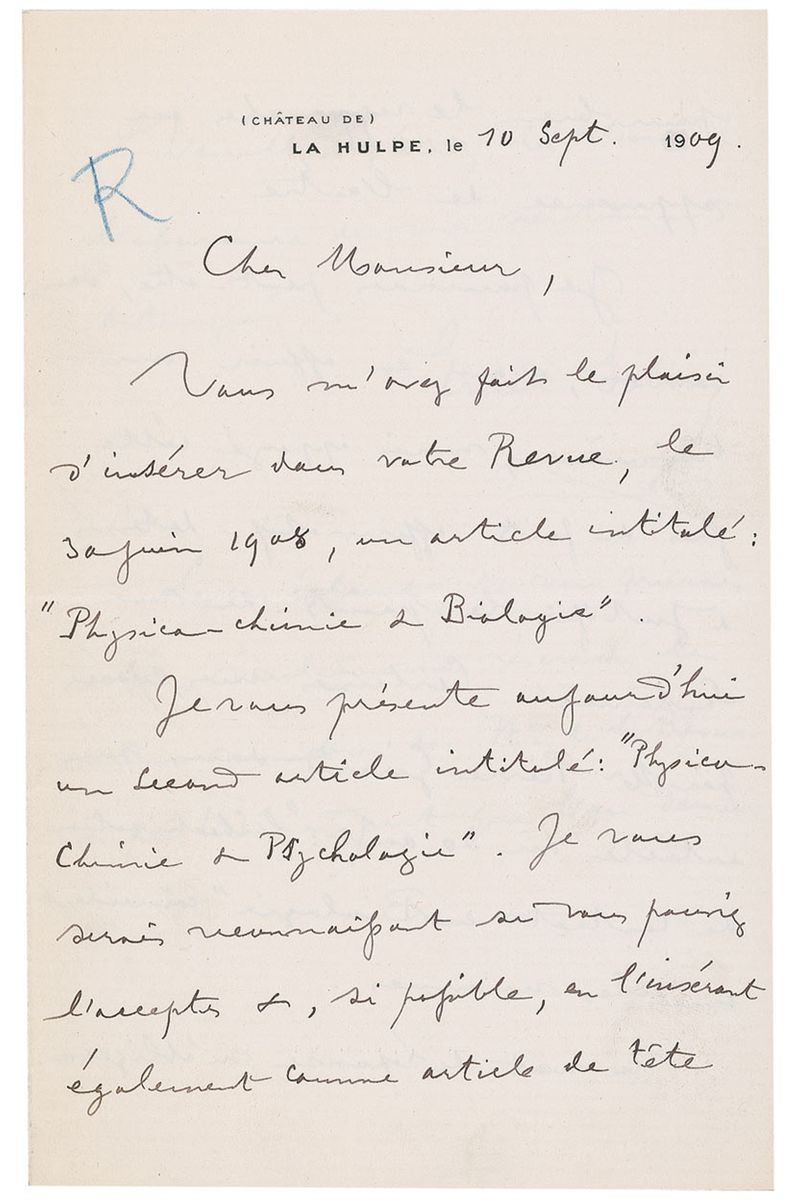 (CHÂTEAU DE)
LA HULPE, le 10 Sept. 1909.
R
Cher Monsieur,
Vous m'avez fait le plaisir
d'insérer dans votre Revue, le
30 juin 1908, un article intitulé :
"Physico-chimie & Biologie".
Je vous présente aujourd'hui
un second article intitulé : "Physico-
Chimie & Psychologie". Je vous
serais reconnaissant si vous pouviez
l'accepter &, si possible, en l'insérant
également comme article de tête